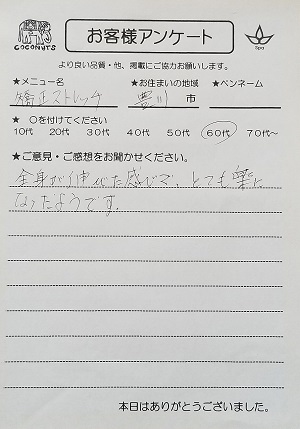 COCONUTS
お客様アンケート
Spa
より良い品質・他、掲載にご協力お願いします。
★メニュー名 ★お住まいの地域 ★ペンネーム
矯正ストレッチ 豊川 市
★ ○を付けてください
10代 20代 30代 40代 50代 60代 70代~
★ご意見・ご感想をお聞かせください。
全身が伸びた感じで、とても楽に
なったようです.
本日はありがとうございました。